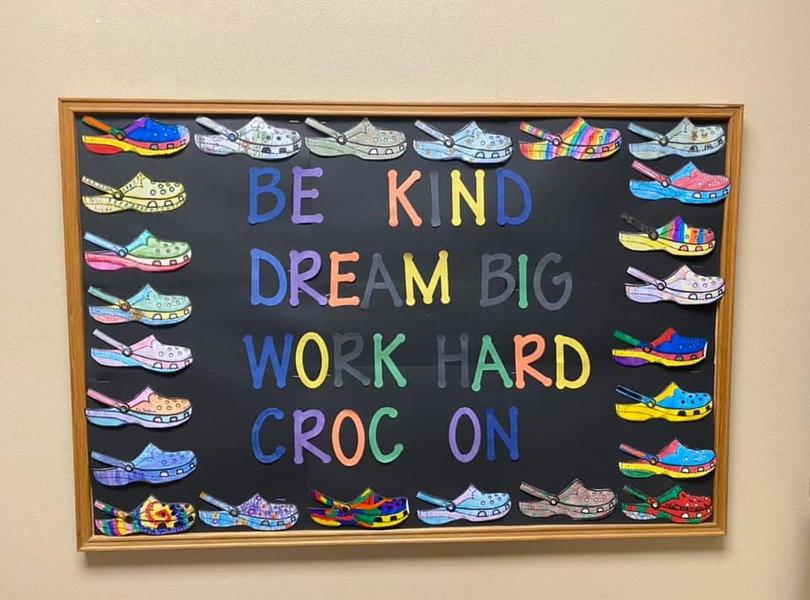 BE KIND
DREAM BIG
WORK HARD
CROC ON